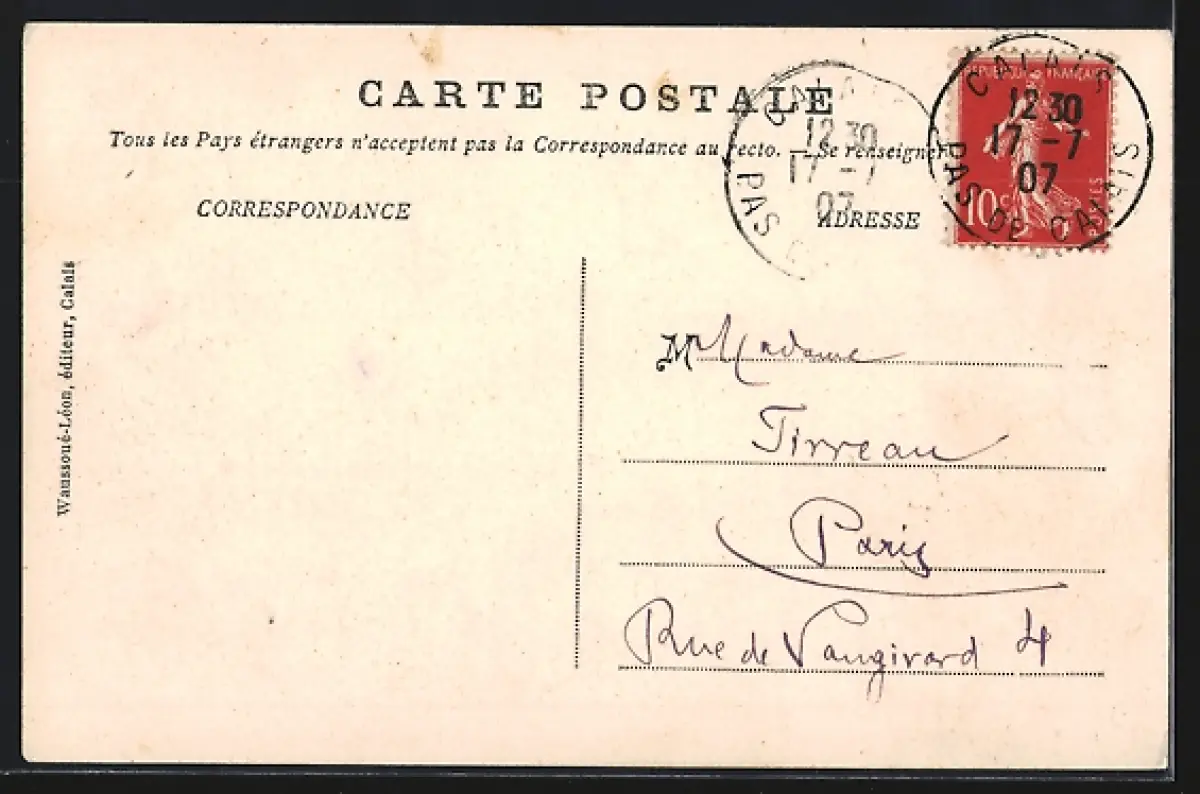 CARTE POSTALE
Tous les Pays étrangers n'acceptent pas la Correspondance au recto. — Se renseigner
CORRESPONDANCE
ADRESSE
REPUBLIQUE FRANÇAISE
10c
POSTES
CALAIS
12 30
17 - 7
07
PAS DE CALAIS
CALAIS
12 30
17 - 7
07
PAS D
Waussoué-Léon, éditeur, Calais
M Madame
Tirreau
Paris
Rue de Vaugirard 4